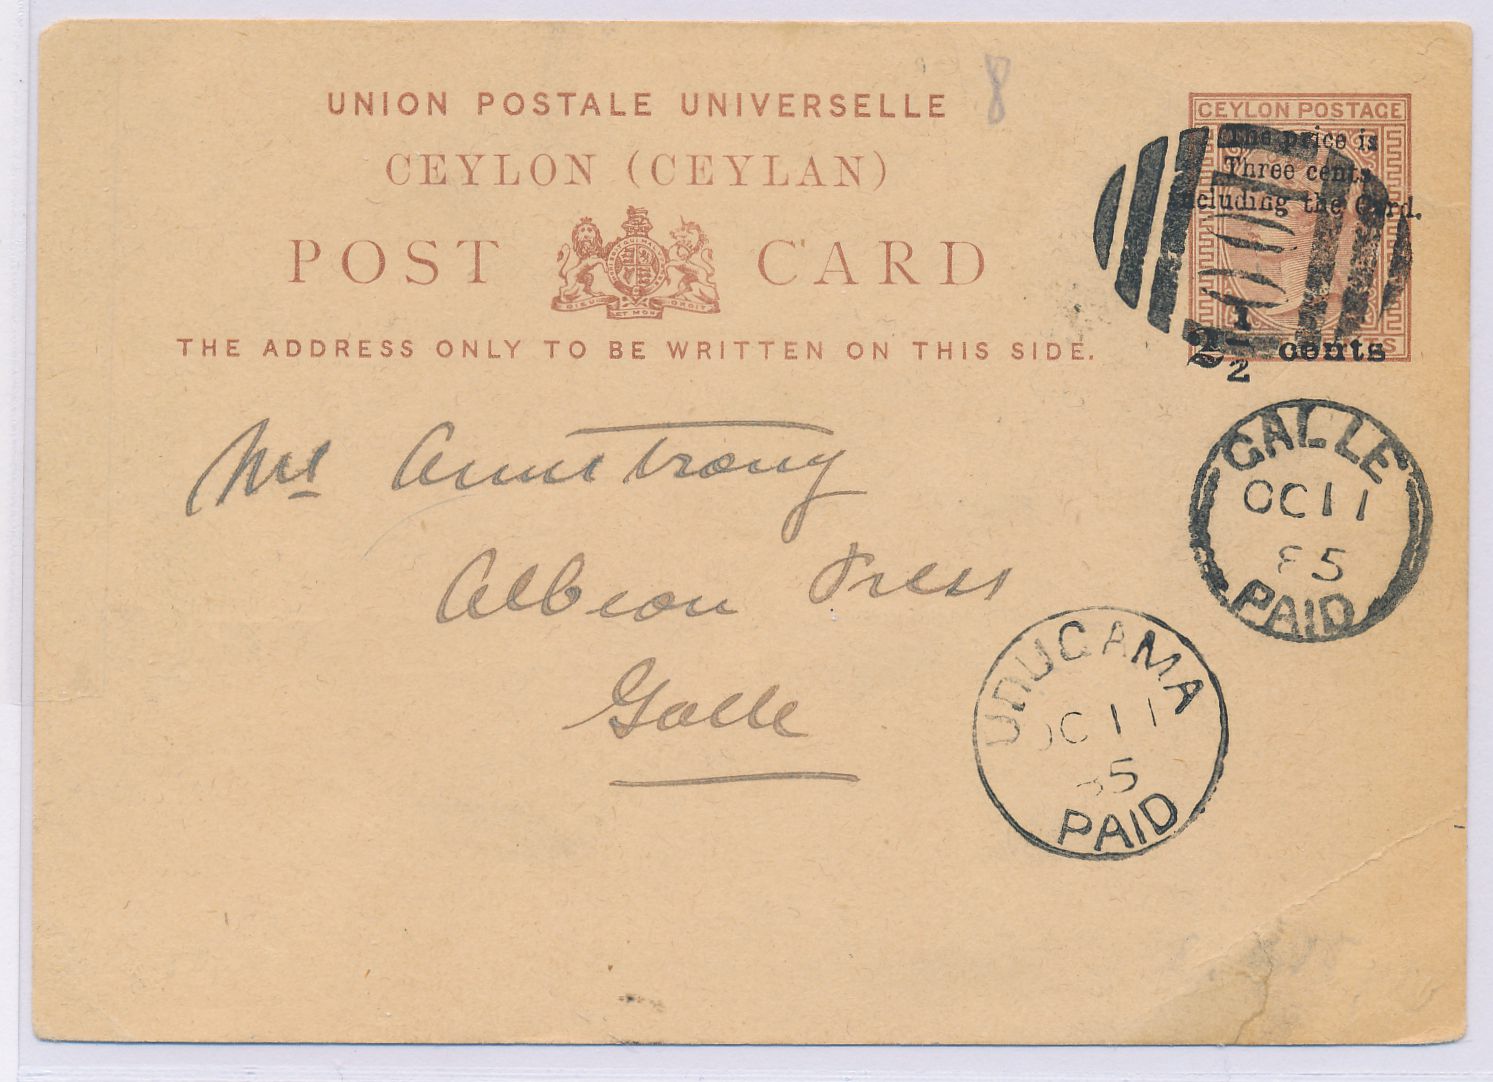 UNION POSTALE UNIVERSELLE
8
CEYLON (CEYLAN)
POST CARD
DIEU ET MON DROIT
THE ADDRESS ONLY TO BE WRITTEN ON THIS SIDE.
CEYLON POSTAGE
The price is
Three cents
ncluding the Card.
2 1/2 cents
Mr Armstrong
Albion Press
Galle
GALLE
OC 11
85
PAID
UDUGAMA
OC 11
85
PAID